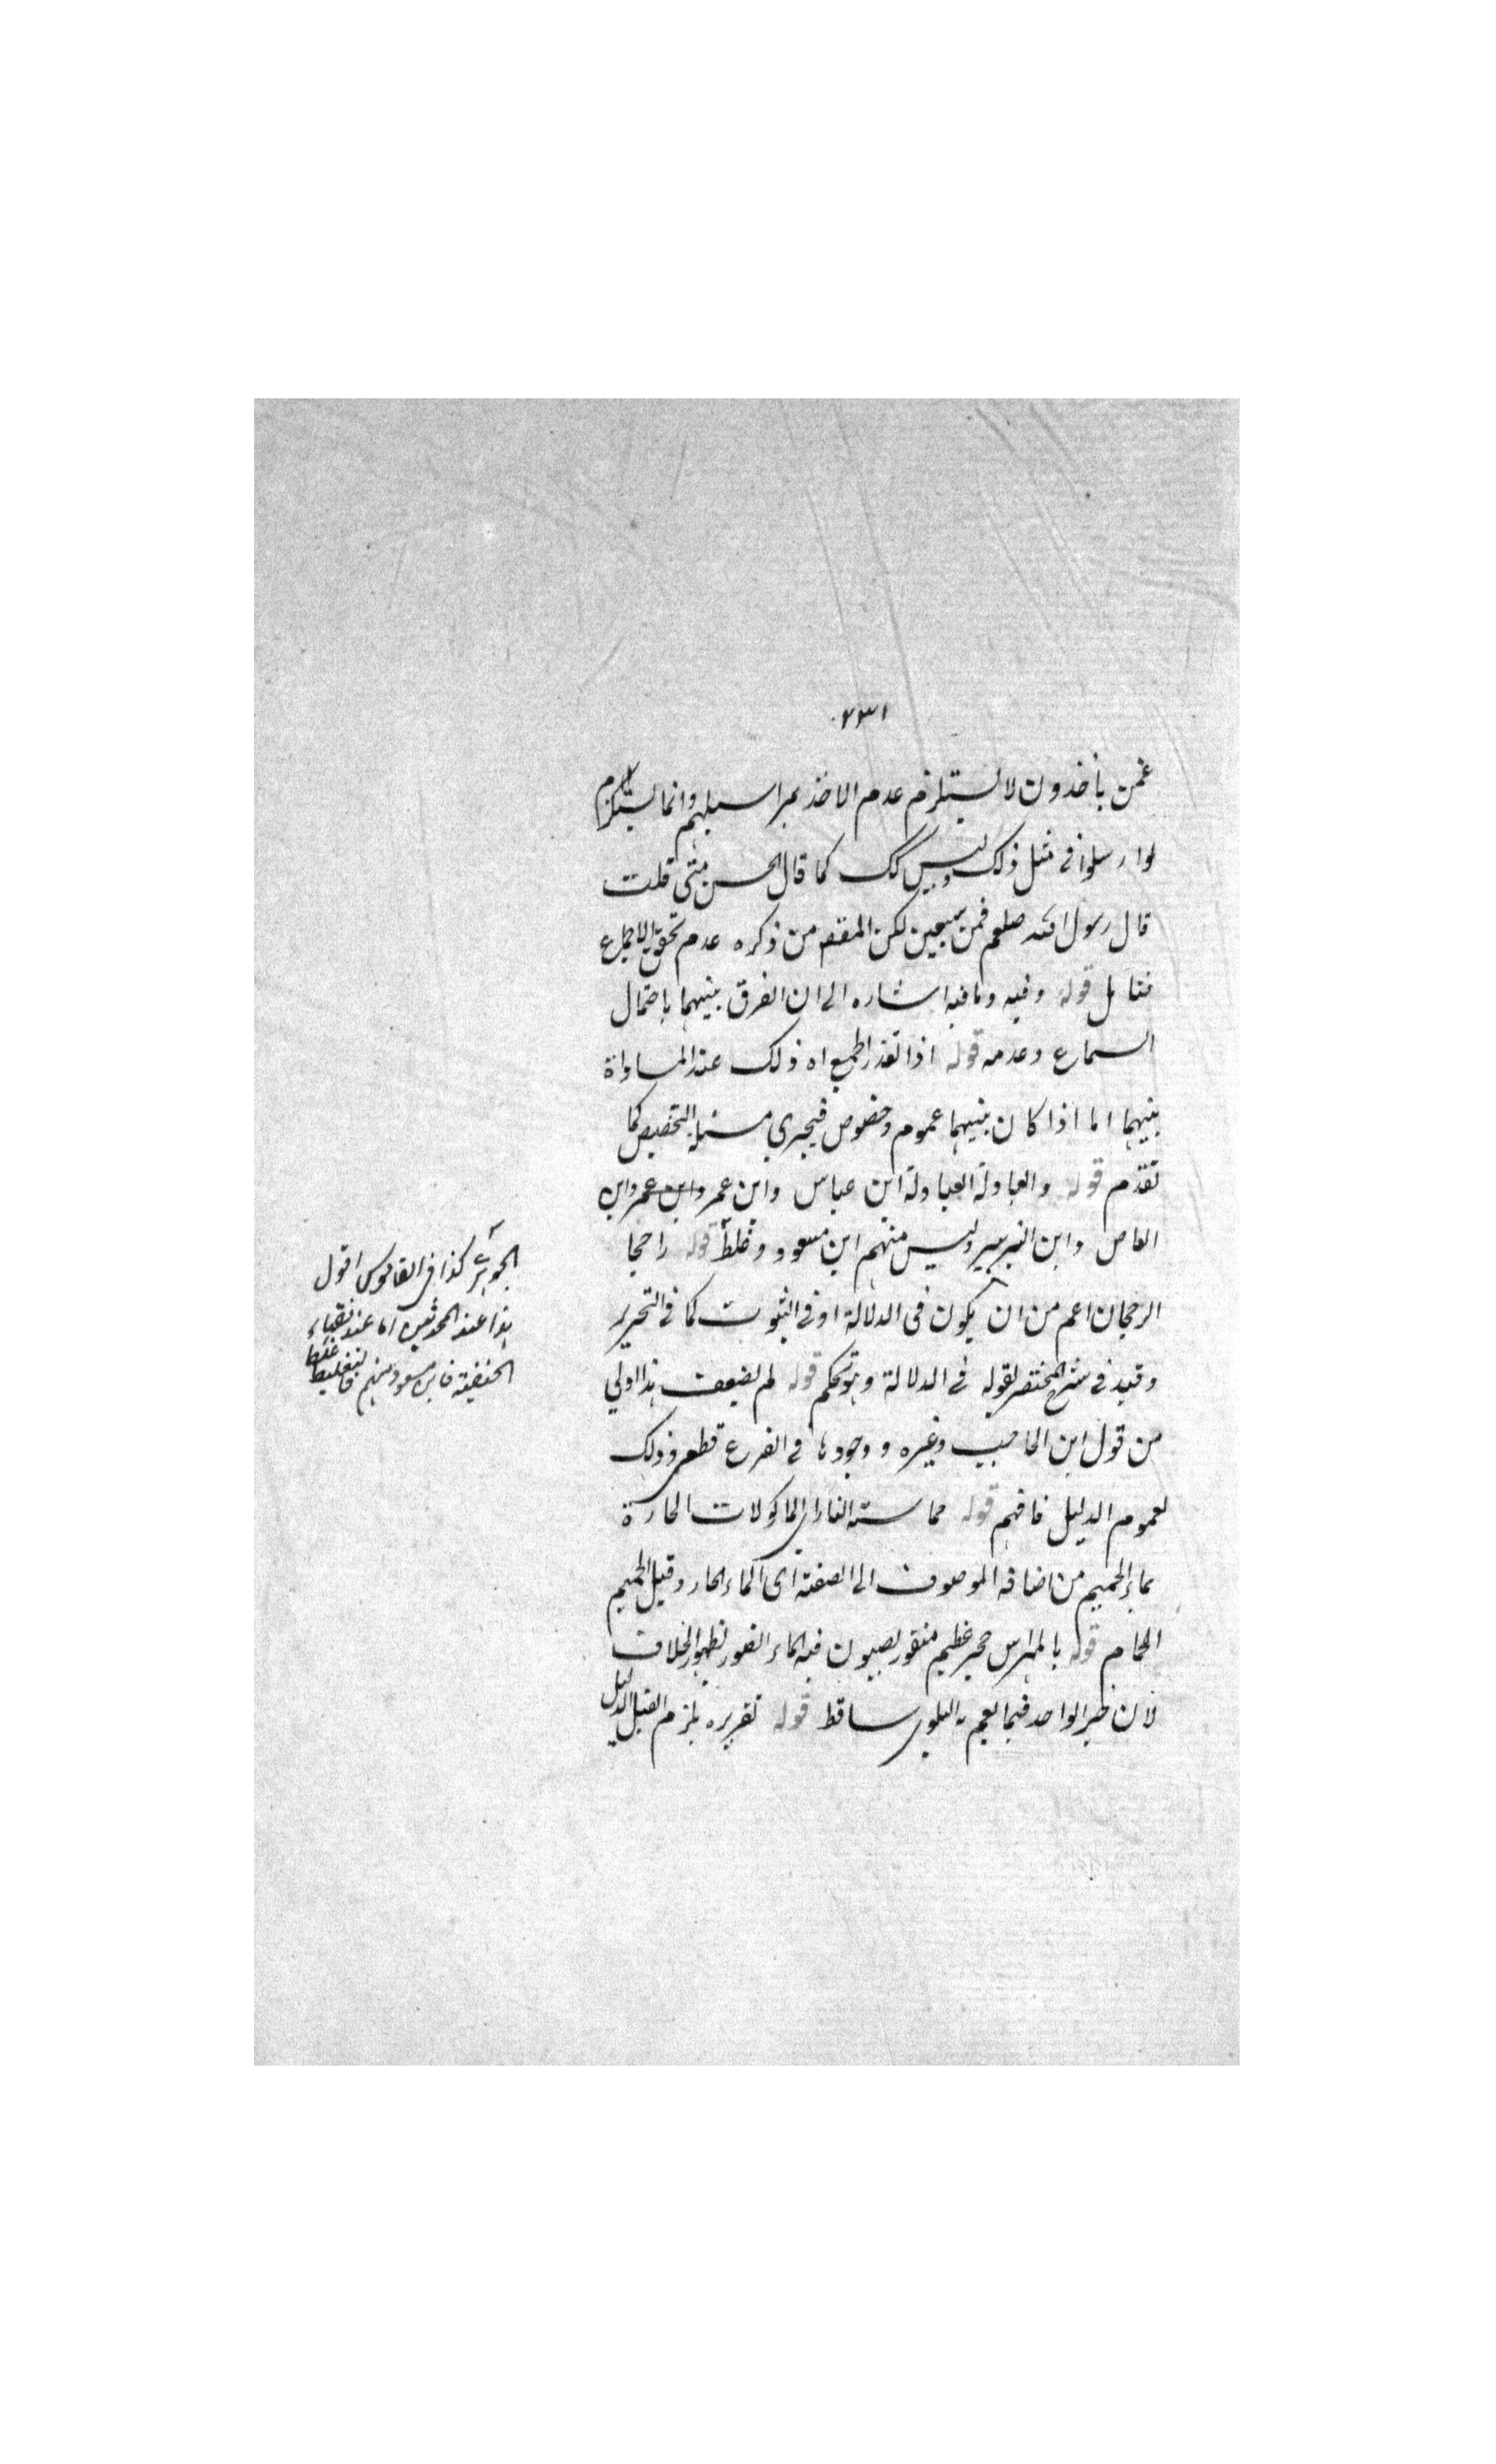 ٢٣١
عمن يأخذون لا يستلزم عدم الاخذ بمراسيلهم وانما يستلزم
لو ارسلوا في مثل ذلك وليس كك كما قال الحسن متى قلت
قال رسول الله صلعم فمن سبعين لكن المقصـ من ذكره عدم تحقق الاجماع
فتامل قوله وفيه ما فيه اشاره الى ان الفرق بينهما باحتمال
السماع وعدمه قوله اذا تعذر الجمع اه ذلك عند المساواة
بينهما اما اذا كان بينهما عموم وخصوص فيجري مسئلة التخصيص كما
تقدم قوله والعبادلة العبادلة ابن عباس وابن عمر وابن عمرو ابن
العاص وابن الزبير وليس منهم ابن مسعود وغلط قوله راجحا
الرجحان اعم من ان يكون في الدلالة او في الثبوت كما في التحرير
وقيد في شرح المختصر بقوله في الدلالة وهو تحكم قوله لم يضعف هذا اولى
من قول ابن الحاجب وغيره ووجودها في الفرع قطعي وذلك
لعموم الدليل فافهم قوله مما مسته النار اي الماكولات الحارة
بماء الحميم من اضافة الموصوف الى الصفة اى الماء الحار وقيل الحميم
الحمام قوله بالمهراس حجر عظيم منقور يصبون فيه الماء لظهور الخلاف
لان خبر الواحد فيما يعم به البلوى ساقط قوله تقريره يلزم الدليل
الجوهري كذا في القاموس اقول
هذا عند المحدثين اما عند فقهاء
الحنفية فابن مسعود منهم فالتغليط
غلط